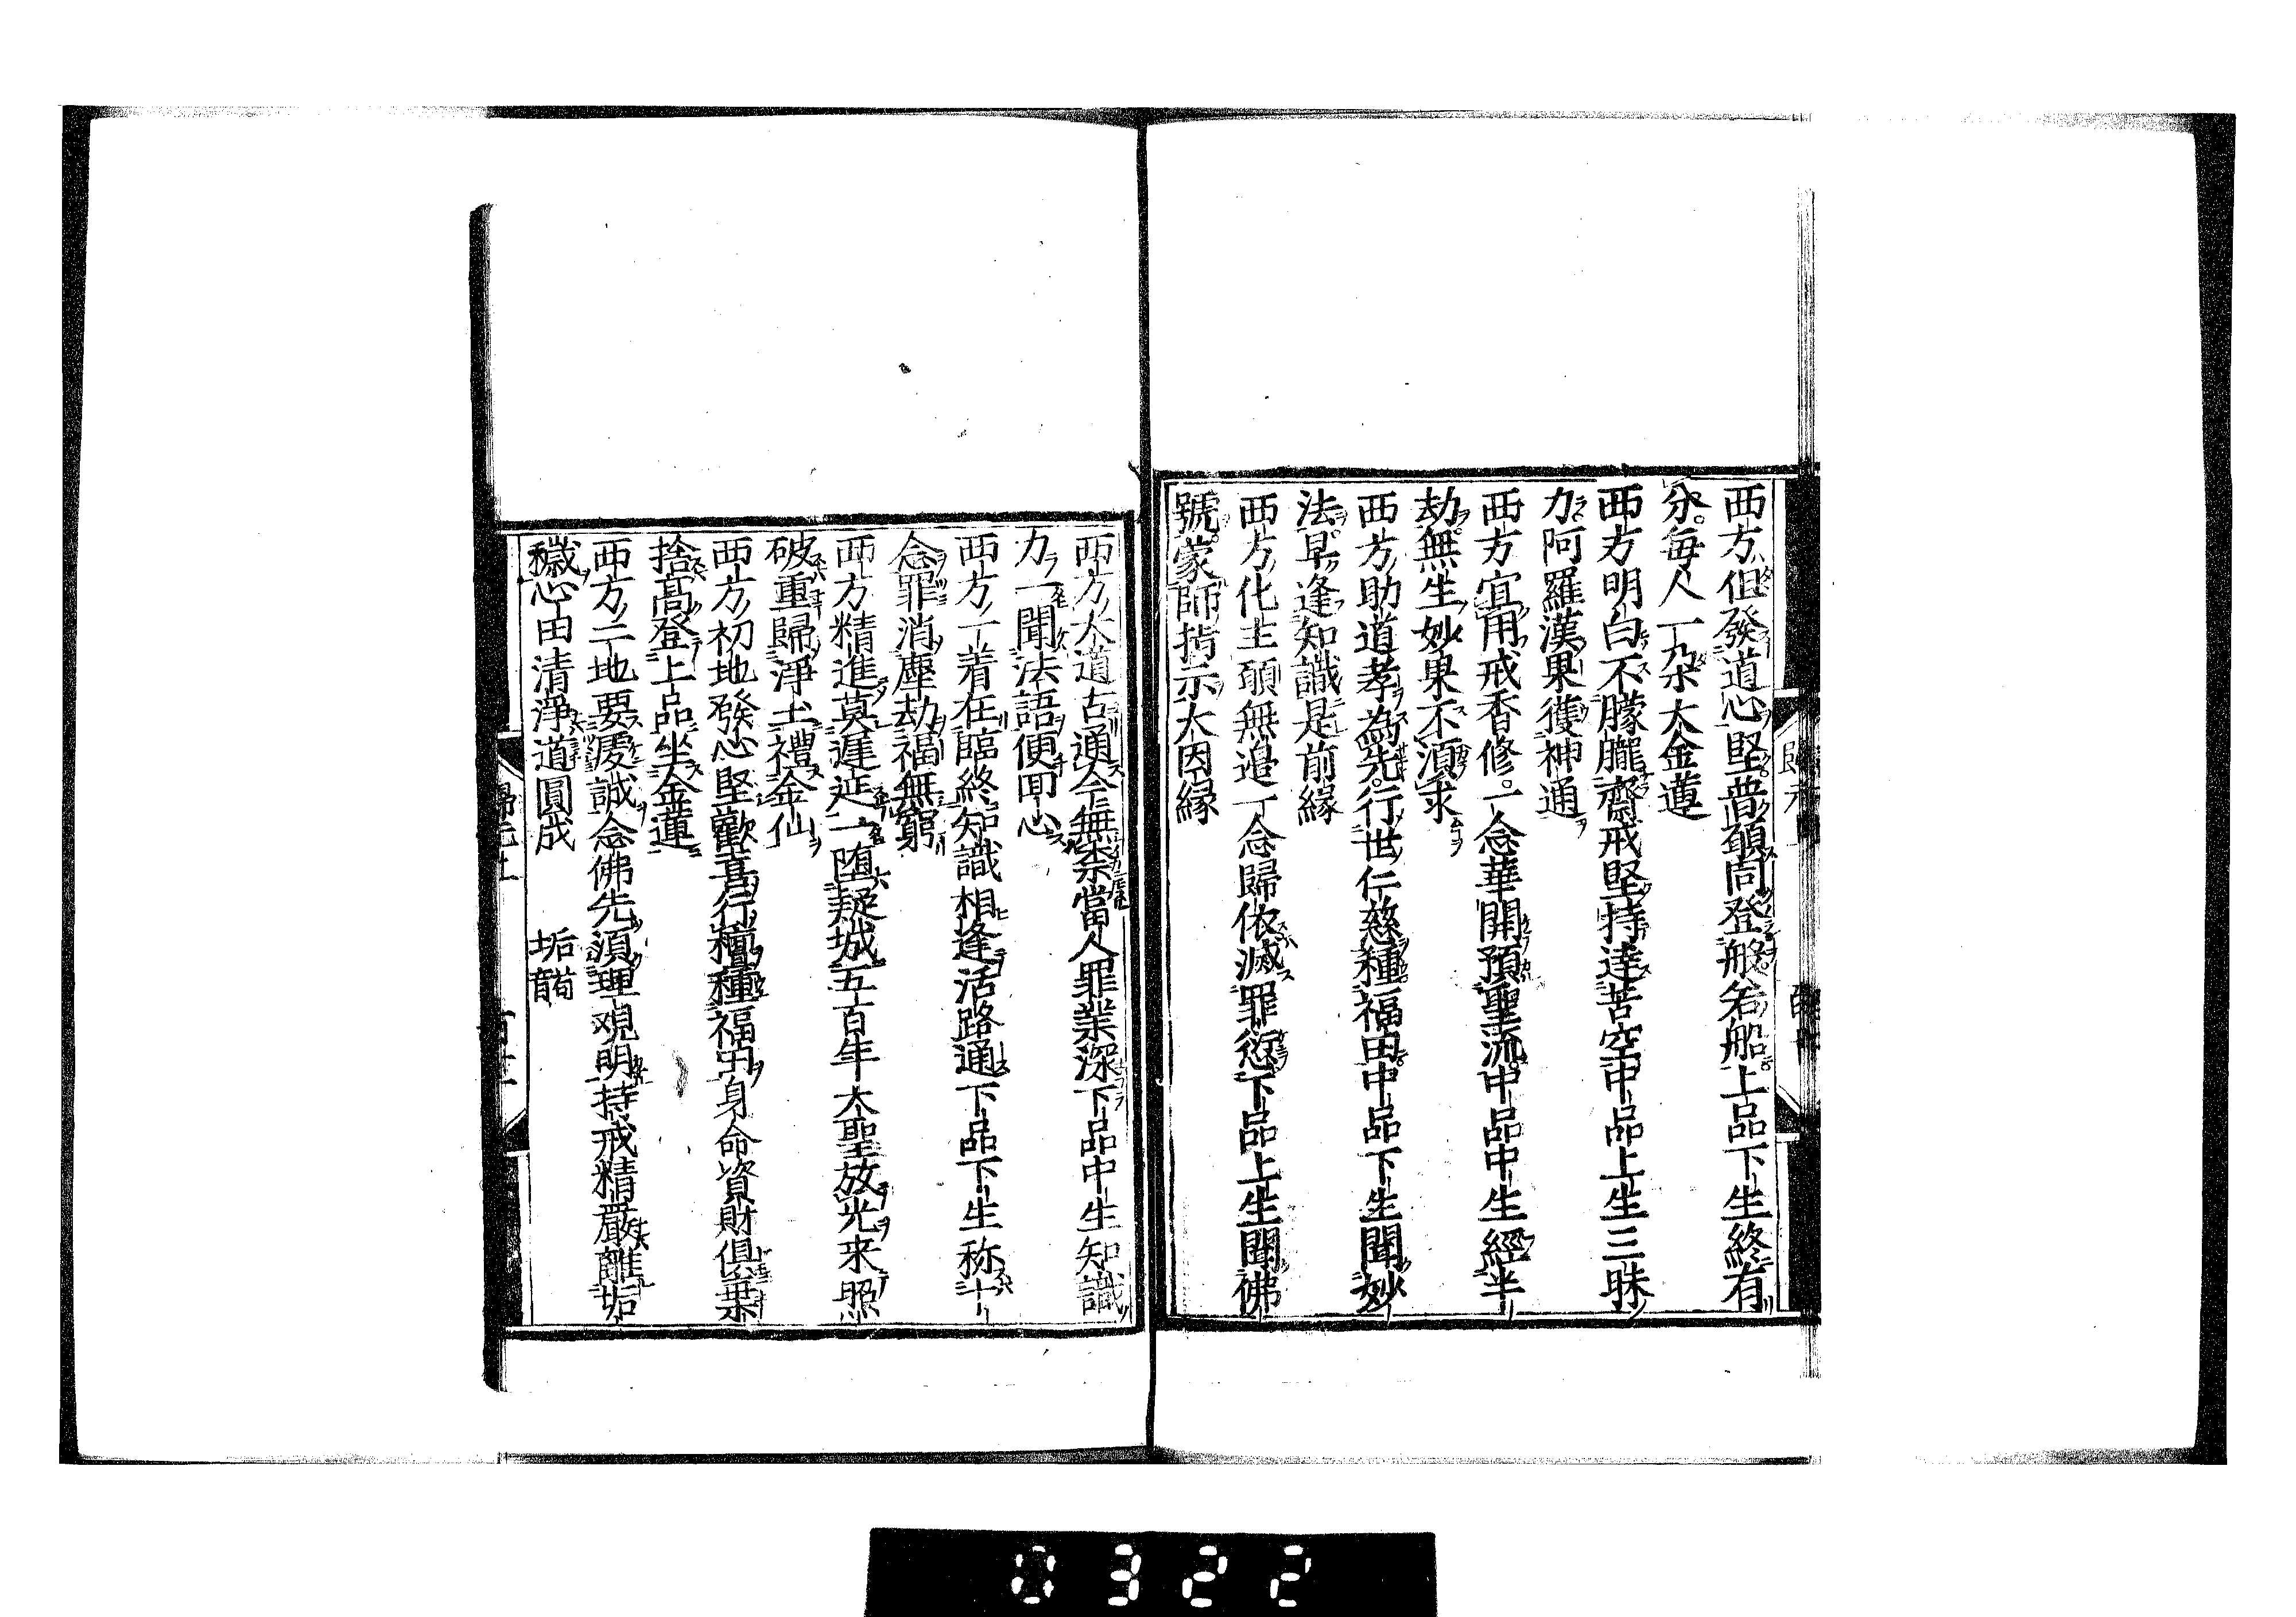 西方但發道心堅普願同登般若船上品下生終有
分每人一朶大金蓮
西方明白不朦朧齋戒堅持達苦空中品上生三昧
力阿羅漢果獲神通
西方宜用戒香修一念華開預聖流中品中生經半
劫無生妙果不須求
西方助道孝為先行世仁慈種福田中品下生聞妙
法早逢知識是前緣
西方化主願無邊一念歸依滅罪愆下品上生聞佛
號蒙師指示大因緣
西方大道古通今無柰當人罪業深下品中生知識
力一聞法語便回心
西方一着在臨終知識相逢活路通下品下生称十
念罪消塵劫福無窮
西方精進莫遲延一墮疑城五百年大聖放光来照
破重歸淨土禮金仙
西方初地發心堅歡喜行檀種福田身命資財俱棄
捨高登上品坐金蓮
西方二地要虔誠念佛先須理観明持戒精嚴離垢
穢心由清淨道圓成　垢
0322